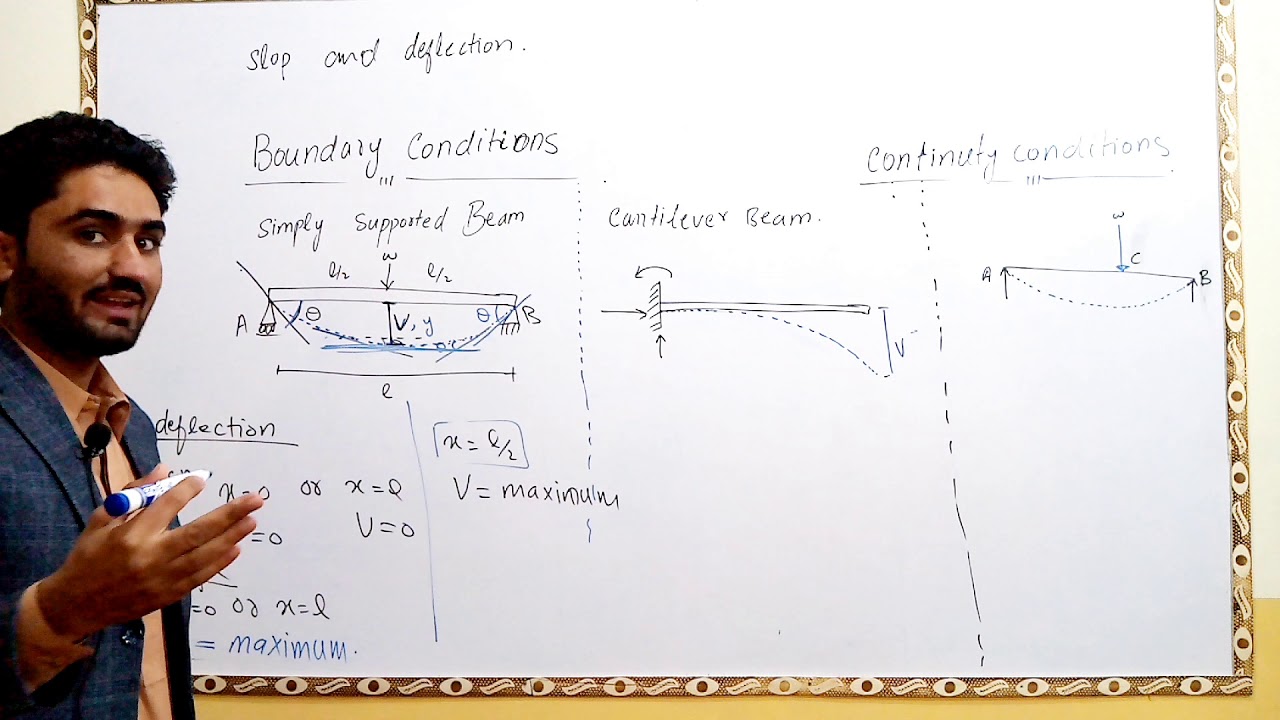 Slop and deflection.
Boundary Conditions
Continuty conditions
Simply Supported Beam
Cantilever Beam.
w
l/2 l/2
A θ V, y θ B
l
V
w
A C B
deflection
x=0 or x=l
=0 V=0
x = l/2
V = maximum
=0 or x=l
= maximum.